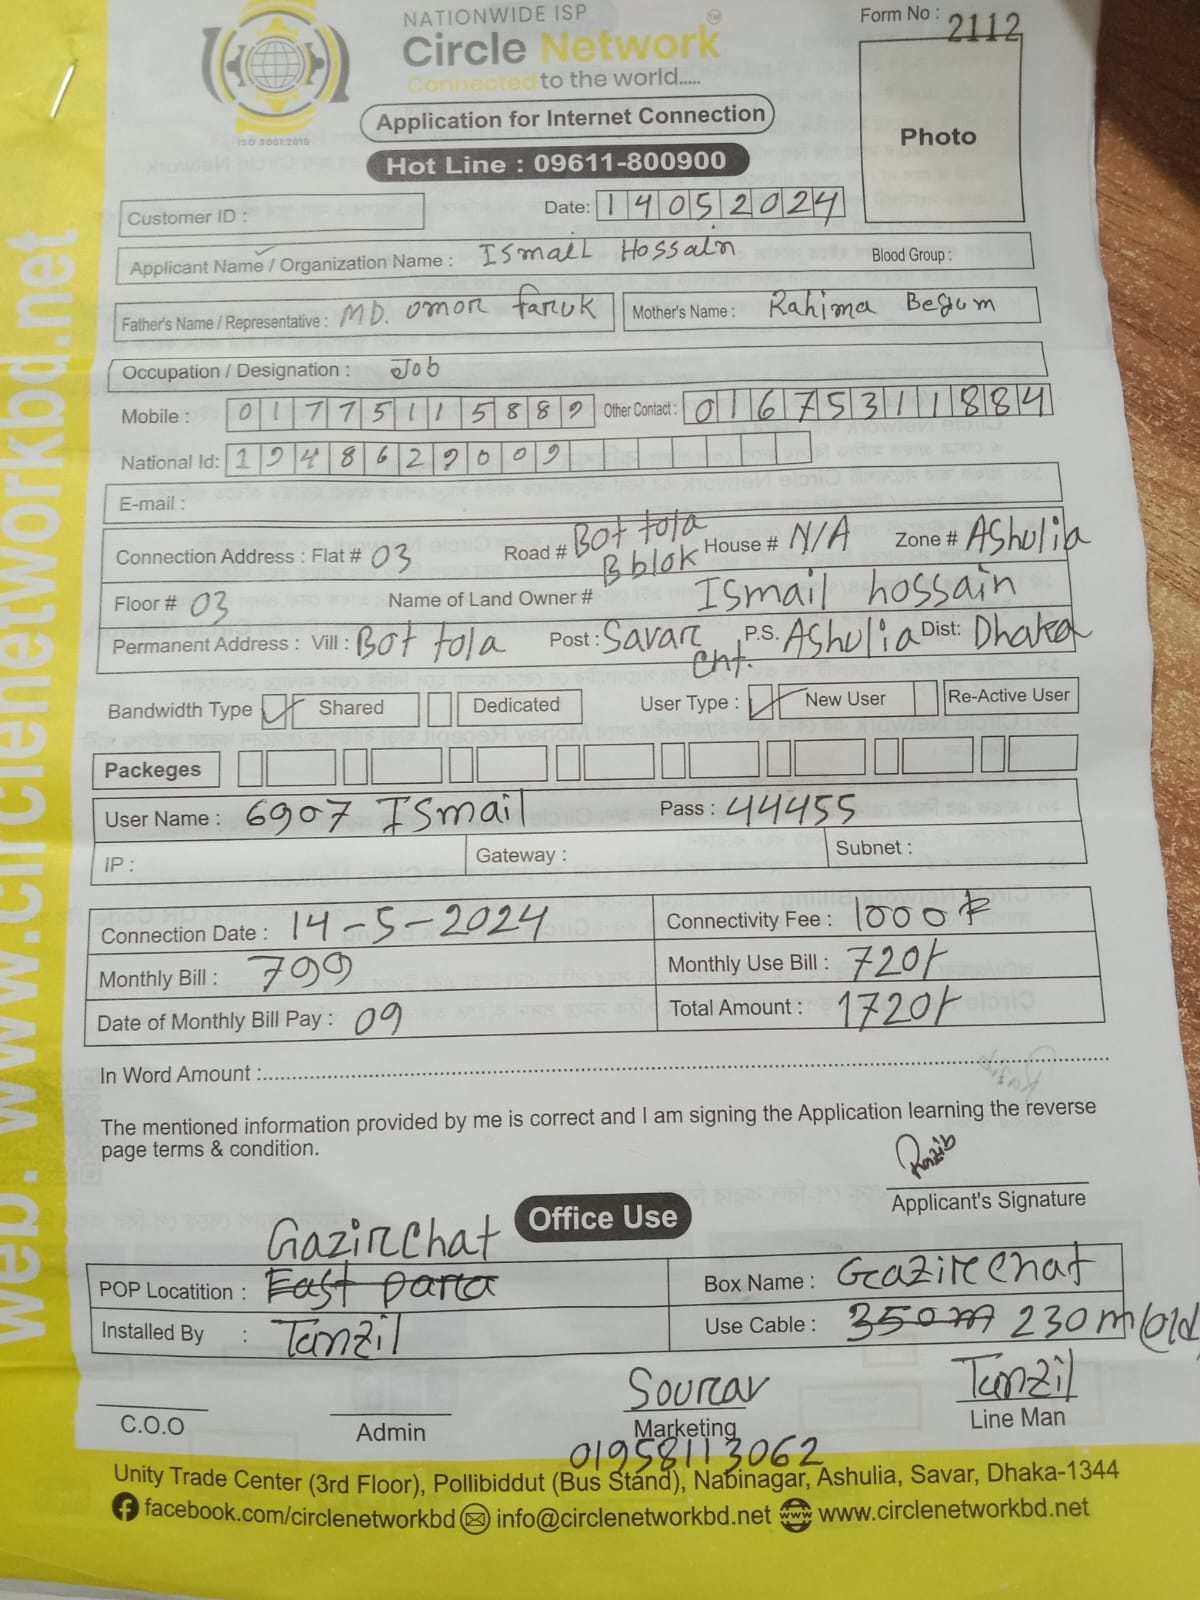 NATIONWIDE ISP
Circle Network
Connected to the world.....
ISO 9001:2015
Form No : 2112
Application for Internet Connection
Hot Line : 09611-800900
Photo
Customer ID :
Date: 14052024
Applicant Name / Organization Name : ISmail Hossain
Blood Group :
Father's Name / Representative : MD. omor faruk
Mother's Name : Rahima Begum
Occupation / Designation : Job
Mobile : 01775115889
Other Contact : 01675311884
National Id: 1948629009
E-mail :
Connection Address : Flat # 03 Road # Bot tola B blok House # N/A Zone # AShulia
Floor # 03 Name of Land Owner # ISmail hossain
Permanent Address : Vill : Bot tola Post : Savar Cnt. P.S. AShulia Dist: Dhaka
Bandwidth Type Shared Dedicated User Type : New User Re-Active User
Packeges
User Name : 6907 ISmail Pass : 44455
IP : Gateway : Subnet :
Connection Date : 14-5-2024 Connectivity Fee : 1000
Monthly Bill : 799 Monthly Use Bill : 720/-
Date of Monthly Bill Pay : 09 Total Amount : 1720/-
In Word Amount :
The mentioned information provided by me is correct and I am signing the Application learning the reverse
page terms & condition.
Razib
Applicant's Signature
Office Use
Gazirchat
POP Locatition : East para Box Name : Gazirchat
Installed By : Tanzil Use Cable : 350m 230m/old
Sourav Tanzil
C.O.O Admin Marketing Line Man
01958113062
Unity Trade Center (3rd Floor), Pollibiddut (Bus Stand), Nabinagar, Ashulia, Savar, Dhaka-1344
facebook.com/circlenetworkbd info@circlenetworkbd.net www.circlenetworkbd.net
web: www.circlenetworkbd.net